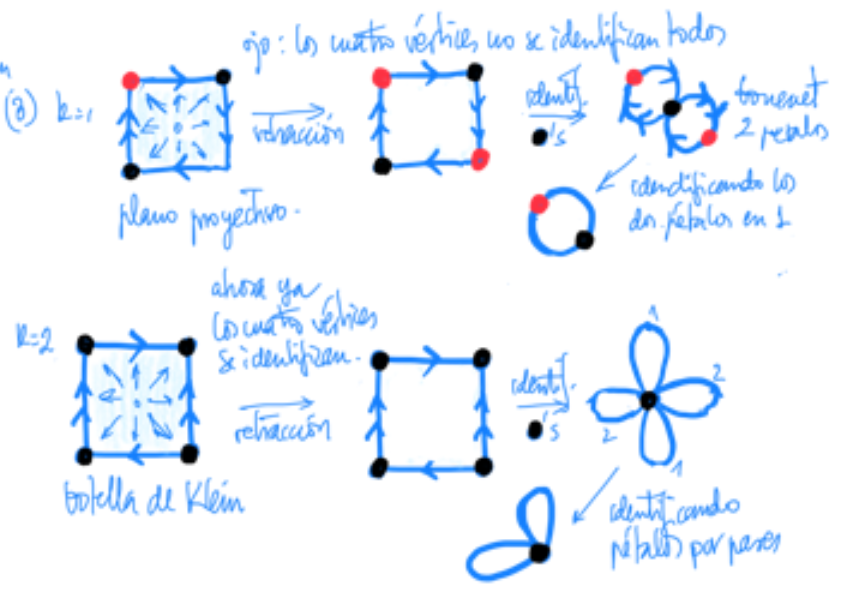 ojo: los cuatro vértices no se identifican todos
n
(8) k=1
retracción
identif.
's
bouquet
2 pétalos
identificando los
dos pétalos en 1
plano proyectivo.
ahora ya
los cuatro vértices
se identifican.
k=2
retracción
identif.
's
1
2
2
1
botella de Klein
identificando
pétalos por pares